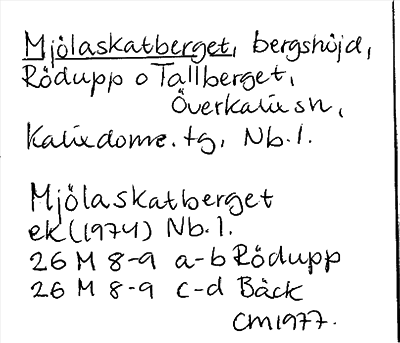 Mjölaskatberget, bergshöjd,
Rödupp o Tallberget,
Överkalix sn,
Kalix dome. tg, Nb. l.
Mjölaskatberget
ek (1974) Nb. l.
26 M 8-9 a-b Rödupp
26 M 8-9 c-d Bäck
CM 1977.